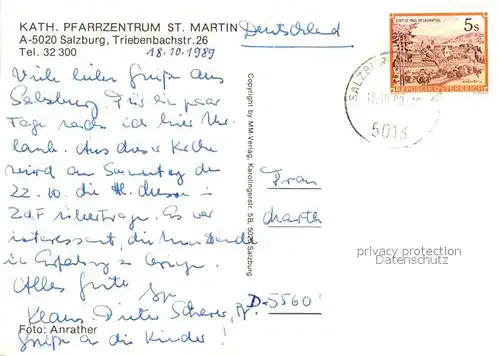 KATH. PFARRZENTRUM ST. MARTIN
A-5020 Salzburg, Triebenbachstr.26
Tel. 32 300
18.10.1989
Deutschland
STIFT ST. PAUL IM LAVANTTAL
5s
REPUBLIK ÖSTERREICH
SALZBURG
5013
Viele liebe Grüße aus
Salzburg. Für ein paar
Tage mache ich hier Ur-
laub. Aus dieser Kirche
wird am Sonntag den
22.10. die Hl. Messe in
ZDF übertragen. Es war
interessant, die
in Erfahrung zu bringen.
Alles Gute
Klaus Dieter Scherer,
Grüße an die Kinder!
Frau
D-5560
Copyright by MM-Verlag, Karolingerstr. 5B, 5020 Salzburg
Foto: Anrather
privacy protection
Datenschutz